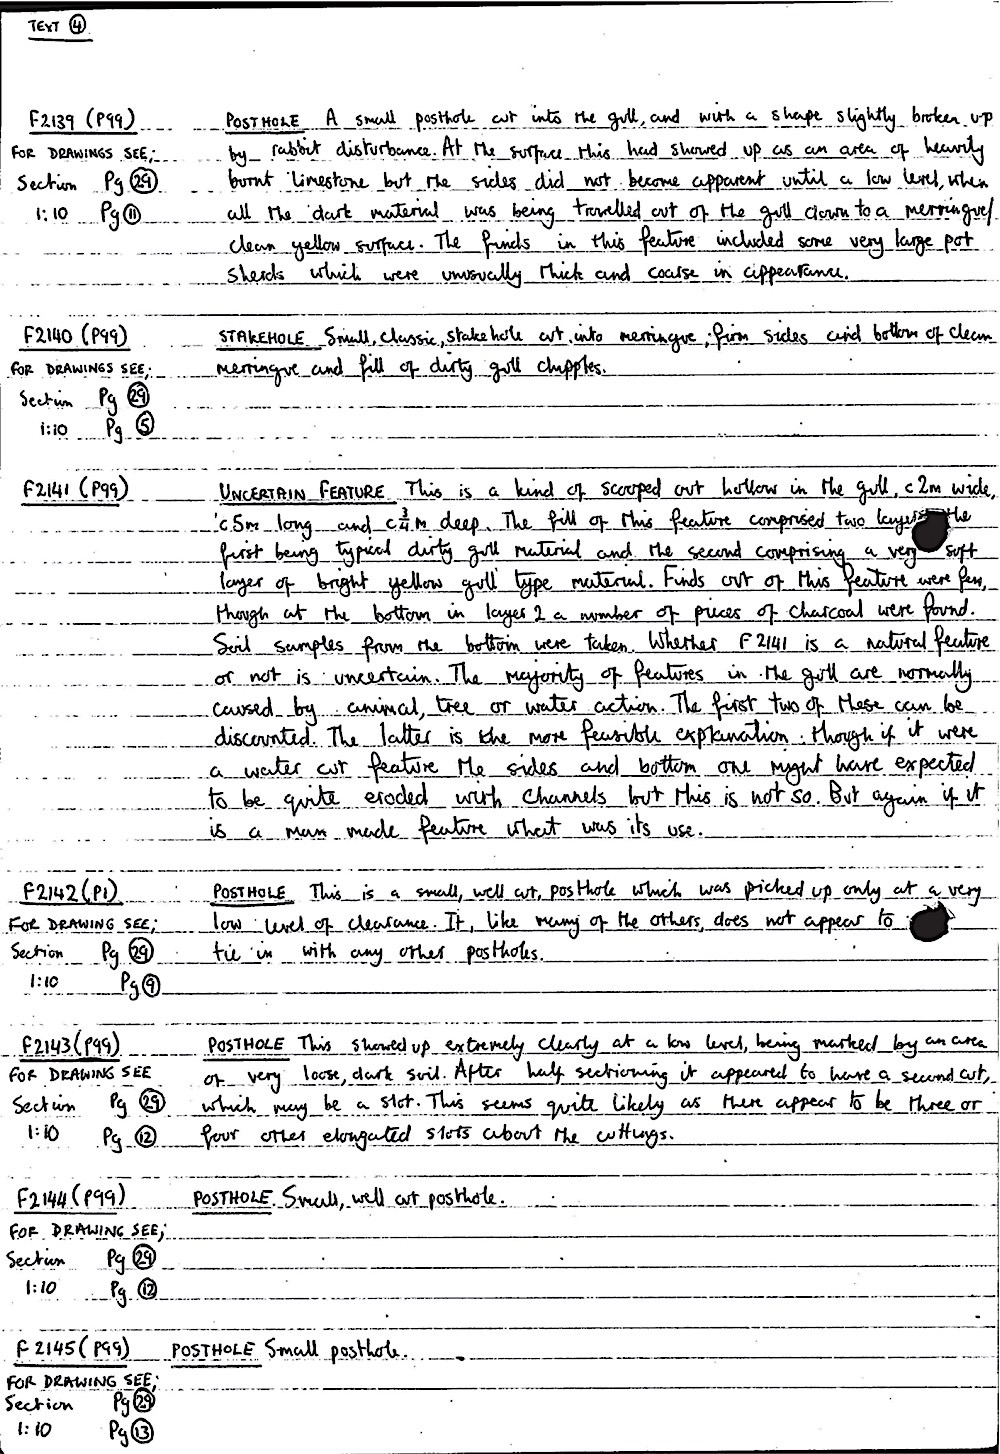 TEXT 4
F2139 (P99) POSTHOLE A small posthole cut into the gull, and with a shape slightly broken up
FOR DRAWINGS SEE; by rabbit disturbance. At the surface this had showed up as an area of heavily
Section Pg 29 burnt limestone but the sides did not become apparent until a low level, when
1:10 Pg 11 all the dark material was being trowelled out of the gull down to a merringue/
clean yellow surface. The finds in this feature included some very large pot
sherds which were unusually thick and coarse in appearance.
F2140 (P99) STAKEHOLE Small, classic, stakehole cut into merringue; firm sides and bottom of clean
FOR DRAWINGS SEE; merringue and fill of dirty gull chipples.
Section Pg 29
1:10 Pg 5
F2141 (P99) UNCERTAIN FEATURE This is a kind of scooped out hollow in the gull, c2m wide,
c5m long and c¾m deep. The fill of this feature comprised two layers the
first being typical dirty gull material and the second comprising a very soft
layer of bright yellow gull type material. Finds out of this feature were few,
though at the bottom in layer 2 a number of pieces of charcoal were found.
Soil samples from the bottom were taken. Whether F2141 is a natural feature
or not is uncertain. The majority of features in the gull are normally
caused by animal, tree or water action. The first two of these can be
discounted. The latter is the more feasible explanation. though if it were
a water cut feature the sides and bottom one might have expected
to be quite eroded with channels but this is not so. But again if it
is a man made feature what was its use.
F2142 (P1) POSTHOLE This is a small, well cut, posthole which was picked up only at a very
FOR DRAWING SEE; low level of clearance. It, like many of the others, does not appear to
Section Pg 29 tie in with any other postholes.
1:10 Pg 9
F2143 (P99) POSTHOLE This showed up extremely clearly at a low level, being marked by an area
FOR DRAWING SEE of very loose, dark soil. After half sectioning it appeared to have a second cut,
Section Pg 29 which may be a slot. This seems quite likely as there appear to be three or
1:10 Pg 12 four other elongated slots about the cuttings.
F2144 (P99) POSTHOLE. Small, well cut posthole.
FOR DRAWING SEE;
Section Pg 29
1:10 Pg 12
F2145 (P99) POSTHOLE Small posthole.
FOR DRAWING SEE;
Section Pg 29
1:10 Pg 13